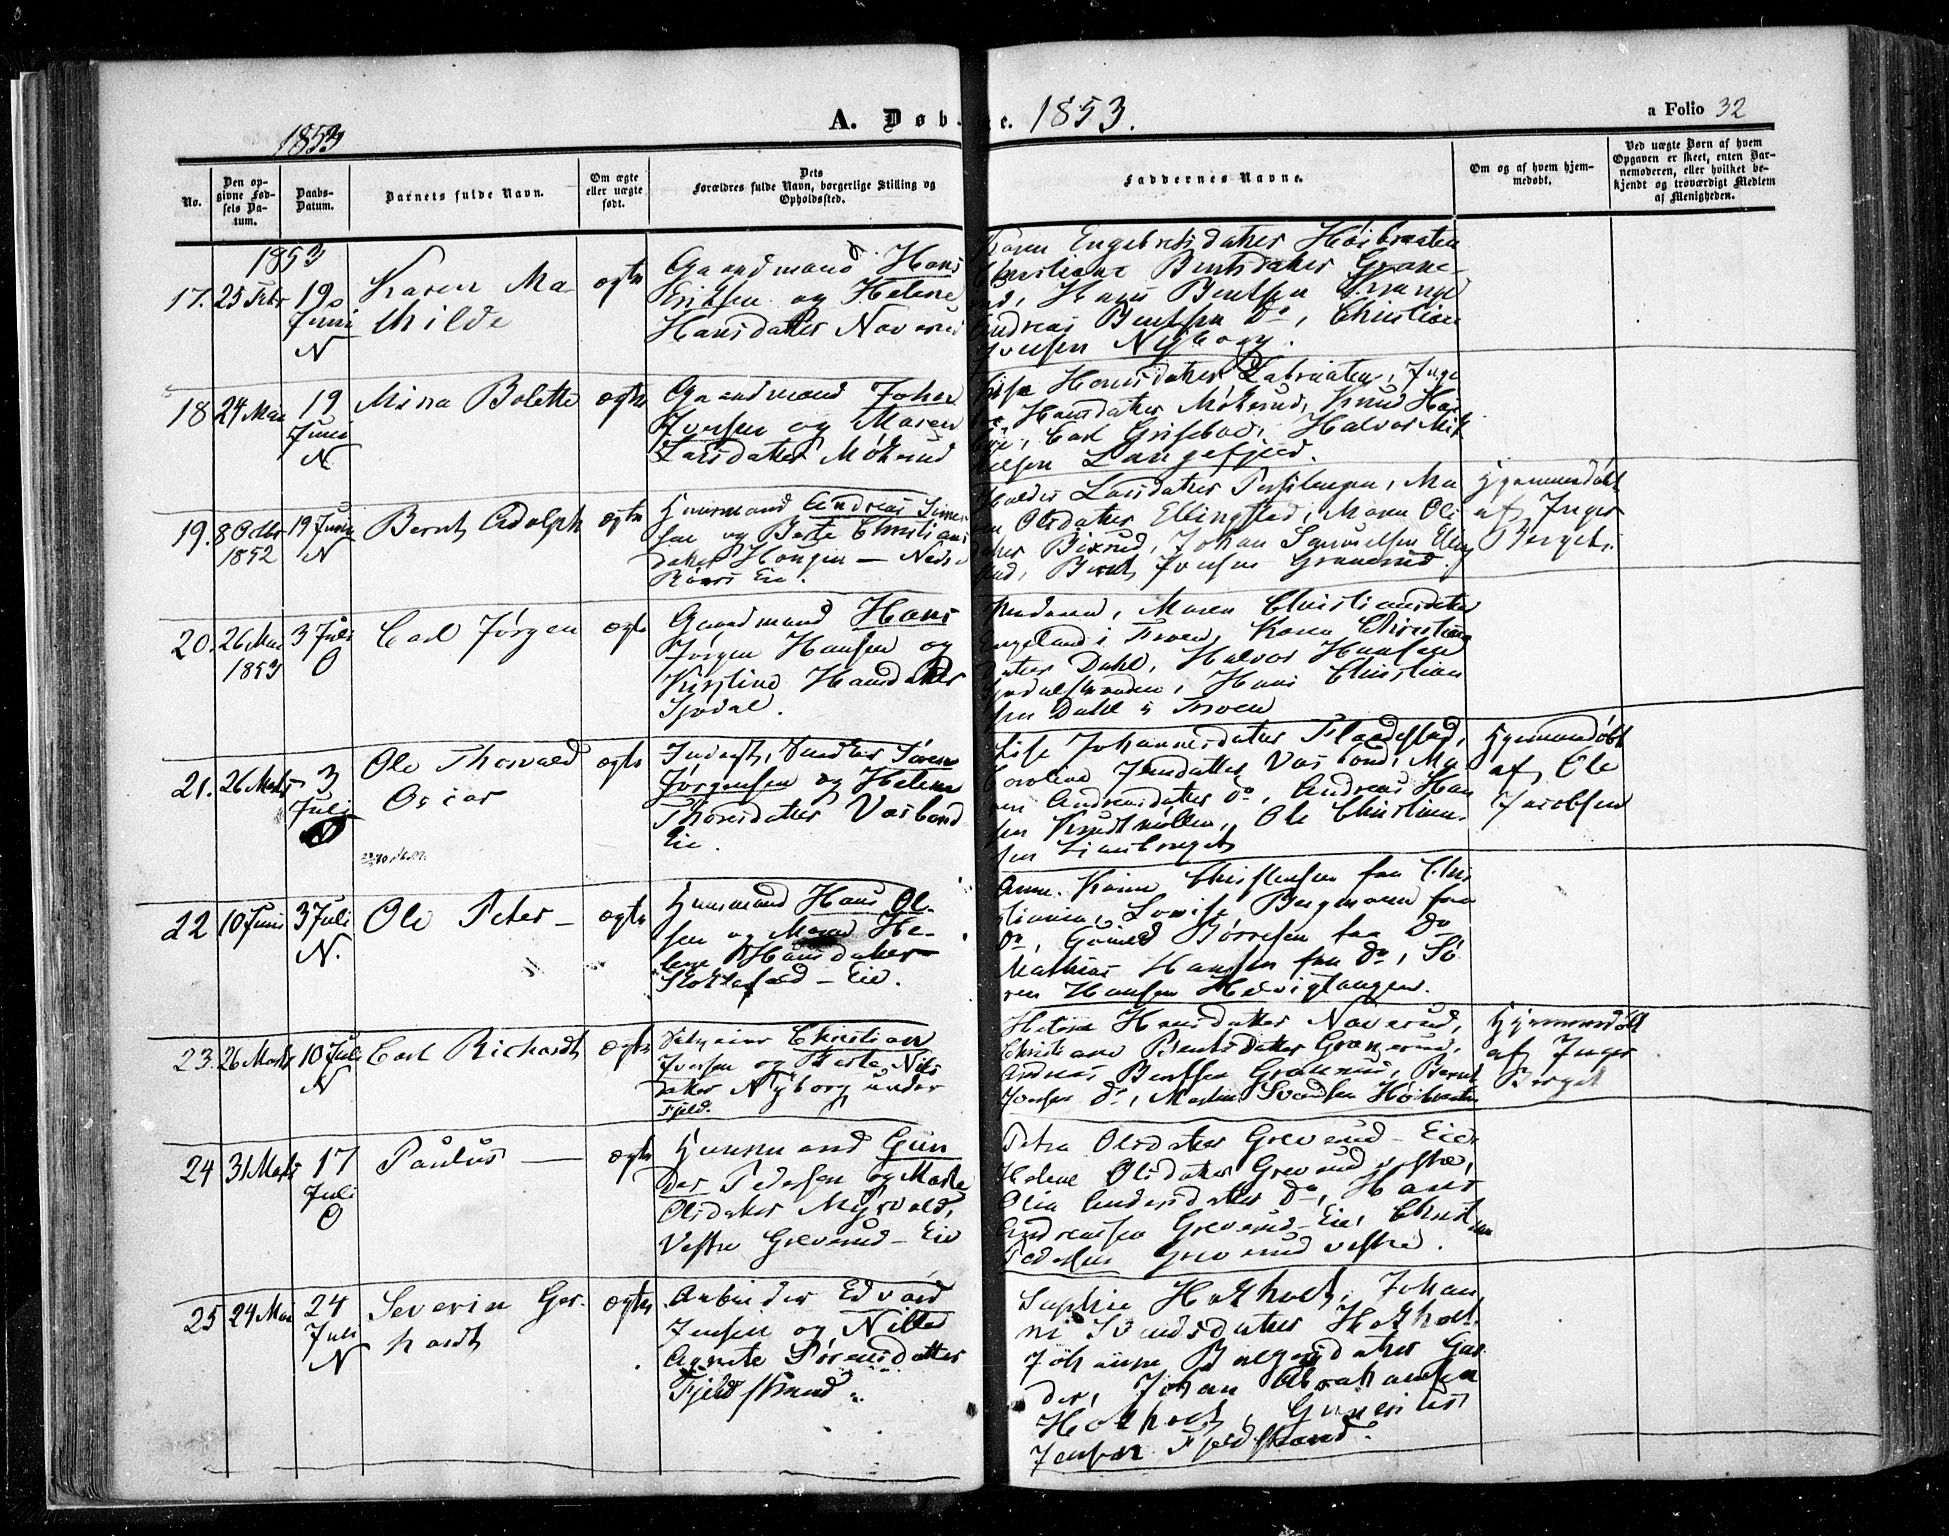 1853
A. Døb e. 1853.
a Folio 32
No.
Den op-
givne Fød-
sels Da-
tum.
Daabs-
Datum.
Barnets fulde Navn.
Om ægte
eller uægte
født.
Dets
Forældres fulde Navn, borgerlige Stilling og
Opholdssted.
Faddernes Navne.
Om og af hvem hjem-
medøbt.
Ved uægte Børn af hvem
Opgaven er skeet, enten Bar-
nemoderen, eller hvilket be-
kjendt og troværdigt Medlem
af Menigheden.
1853
17. 25 Febr
19
Juni
N
Karen Ma-
thilde
ægte
Gaardmand Hans
Eriksen og Helene
Hansdatter Naverud
Engebretsdatter Høibraaten
Christiane Berntsdatter Grane-
Hans Berntsen
Andreas Berntsen do, Christian
Iversen Nyborg.
18
24 Mai
19
Juni
N.
Mina Bolette
ægte
Gaardmand Johan
Iversen og Maren
Larsdatter Møkerud
Hansdatter Labraaten, Inge
Hansdatter Møkerud, Knud
Carl Halvor Mik
kelsen Langefjeld.
19.
8 Octbr
1852
19 Juni
N
Bernt Adolph
ægte
Huusmand Andreas Simen
sen og Berte Christians
datter Haugen — Nedre
Eie.
Larsdatter Ma
Olsdatter Ellingstad, Maren Ols
datter Johan Samuelsen
rud, Bernt Iversen Granerud.
Hjemmedøbt
af Inger
Berget.
20.
26 Mai
1853
3 Juli
O
Carl Jørgen
ægte
Gaardmand Hans
Jørgen Hansen og
Kirstine Hansdatter
Sjødal.
Maren Christiansdatter
i Froen, Karen Christians
datter Dahl, Halvor Hansen
Hans Christian
sen Dahl i Froen
21.
26 Marts
3
Juli
N
Ole Thorvald
Oscar
ægte
Søren
Jørgensen og Helene
Thoresdatter Vasbond
Eie.
Lise Johannesdatter Flaadestad,
Caroline Jensdatter Vasbond, Ma
ren Andreasdatter do, Andreas Han
sen Ole Christian-
sen
Hjemmedøbt
af Ole
Jacobsen
22
10 Juni
3 Juli
N.
Ole Peter —
ægte
Huusmand Hans Ol-
sen og He-
lene Hansdatter
— Eie.
Anne Karine Christensen fra Chri
stiania, Lovise Bergmann fra
do, Børresen fra do
Mathias Hansen fra do, Sø
ren Hansen Helvigtangen.
23.
26 Marts
10 Juli
N
Carl Richardt
ægte
Christian
Iversen og Berte Nils
datter Nyborg under
Fjeld.
Helene Hansdatter Naverud,
Christiane Berntsdatter Granerud,
Andreas Berntsen Granerud, Bernt
Iversen do, Martin Svendsen Høibraaten
Hjemmedøbt
af Inger
Berget
24
31 Marts
17
Juli
O
Paulus —
ægte
Huusmand Gun
der Pedersen og Marte
Olsdatter Myrvold,
Vestre Greverud — Eie
Petra Olsdatter Greverud — Eie
Helene Olsdatter Greverud vestre,
Olia Andersdatter do, Hans
Andreassen Greverud — Eie, Christian
Pedersen Greverud vestre.
25
24 Mai
24
Juli
N
Severin Ger-
hardt
ægte
Arbeider Edvard
Jensen og Nille
Agnete Sørensdatter
Fjeldstrand.
Sophie Hokholt, Johan
ne Svendsdatter Hokholt,
Johanne Gar
der, Johan Abrahamsen
Hokholt,
Jensen Fjeldstrand.